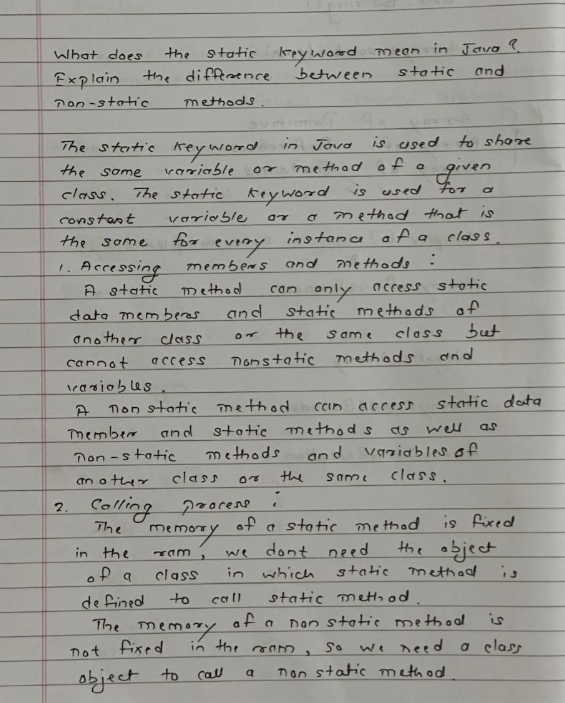 What does the static keyword mean in Java?
Explain the difference between static and
non-static methods.
The static keyword in Java is used to share
the same variable or method of a given
class. The static keyword is used for a
constant variable or a method that is
the same for every instance of a class.
1. Accessing members and methods :
A static method can only access static
data members and static methods of
another class or the same class but
cannot access nonstatic methods and
variables.
A non static method can access static data
member and static methods as well as
non-static methods and variables of
another class or the same class.
2. Calling process :
The memory of a static method is fixed
in the ram, we dont need the object
of a class in which static method is
defined to call static method.
The memory of a non static method is
not fixed in the ram, so we need a class
object to call a non static method.